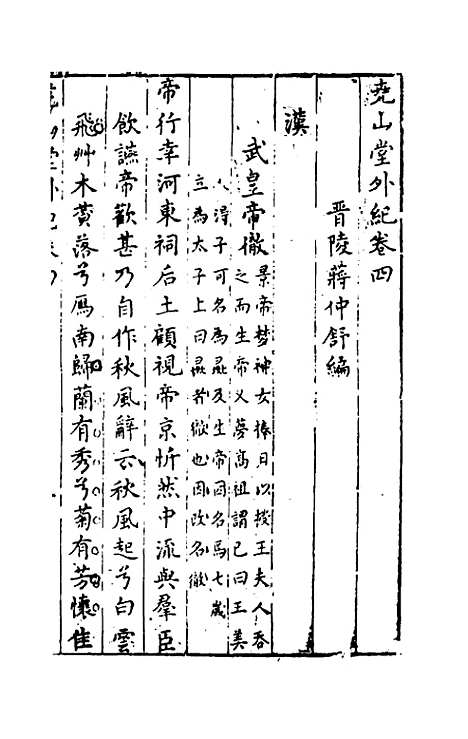 堯山堂外紀卷四
晉陵蔣仲舒編
漢
武皇帝徹
景帝夢神女捧日以授王夫人吞
之而生帝又夢高祖謂己曰王美
人得子可名為彘及生帝因名焉七歲
立為太子上曰彘者徹也因改名徹
帝行幸河東祠后土顧視帝京忻然中流與羣臣
飲讌帝歡甚乃自作秋風辭云秋風起兮白雲
飛艸木黃落兮鴈南歸蘭有秀兮菊有芳懷佳